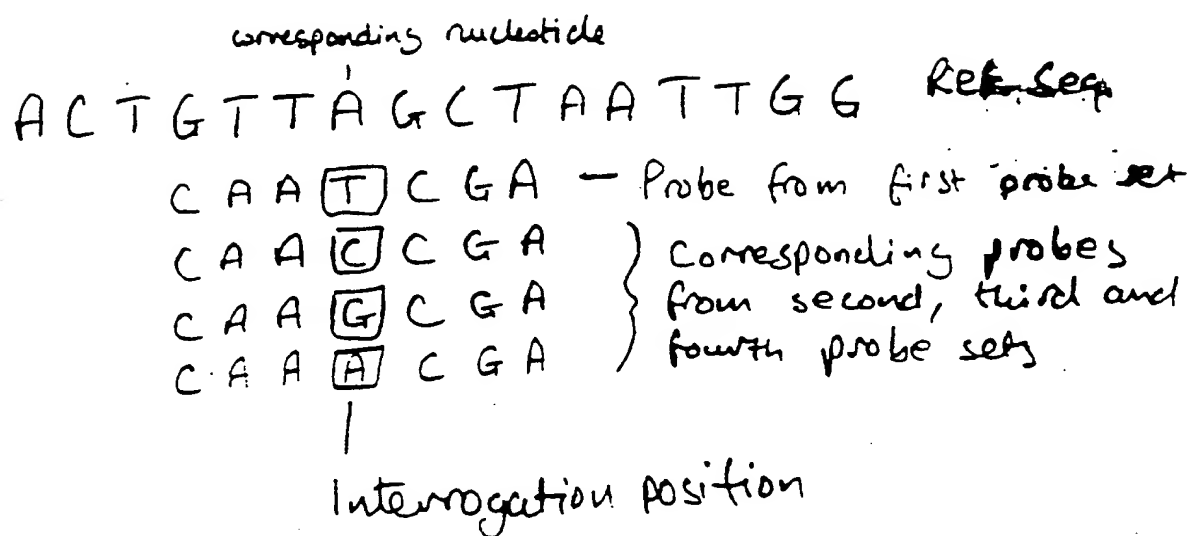 corresponding nucleotide
A C T G T T A G C T A A T T G G Ref. Seq.
C A A T C G A — Probe from first probe set
C A A C C G A } Corresponding probes
C A A G C G A from second, third and
C A A A C G A fourth probe sets
Interrogation position